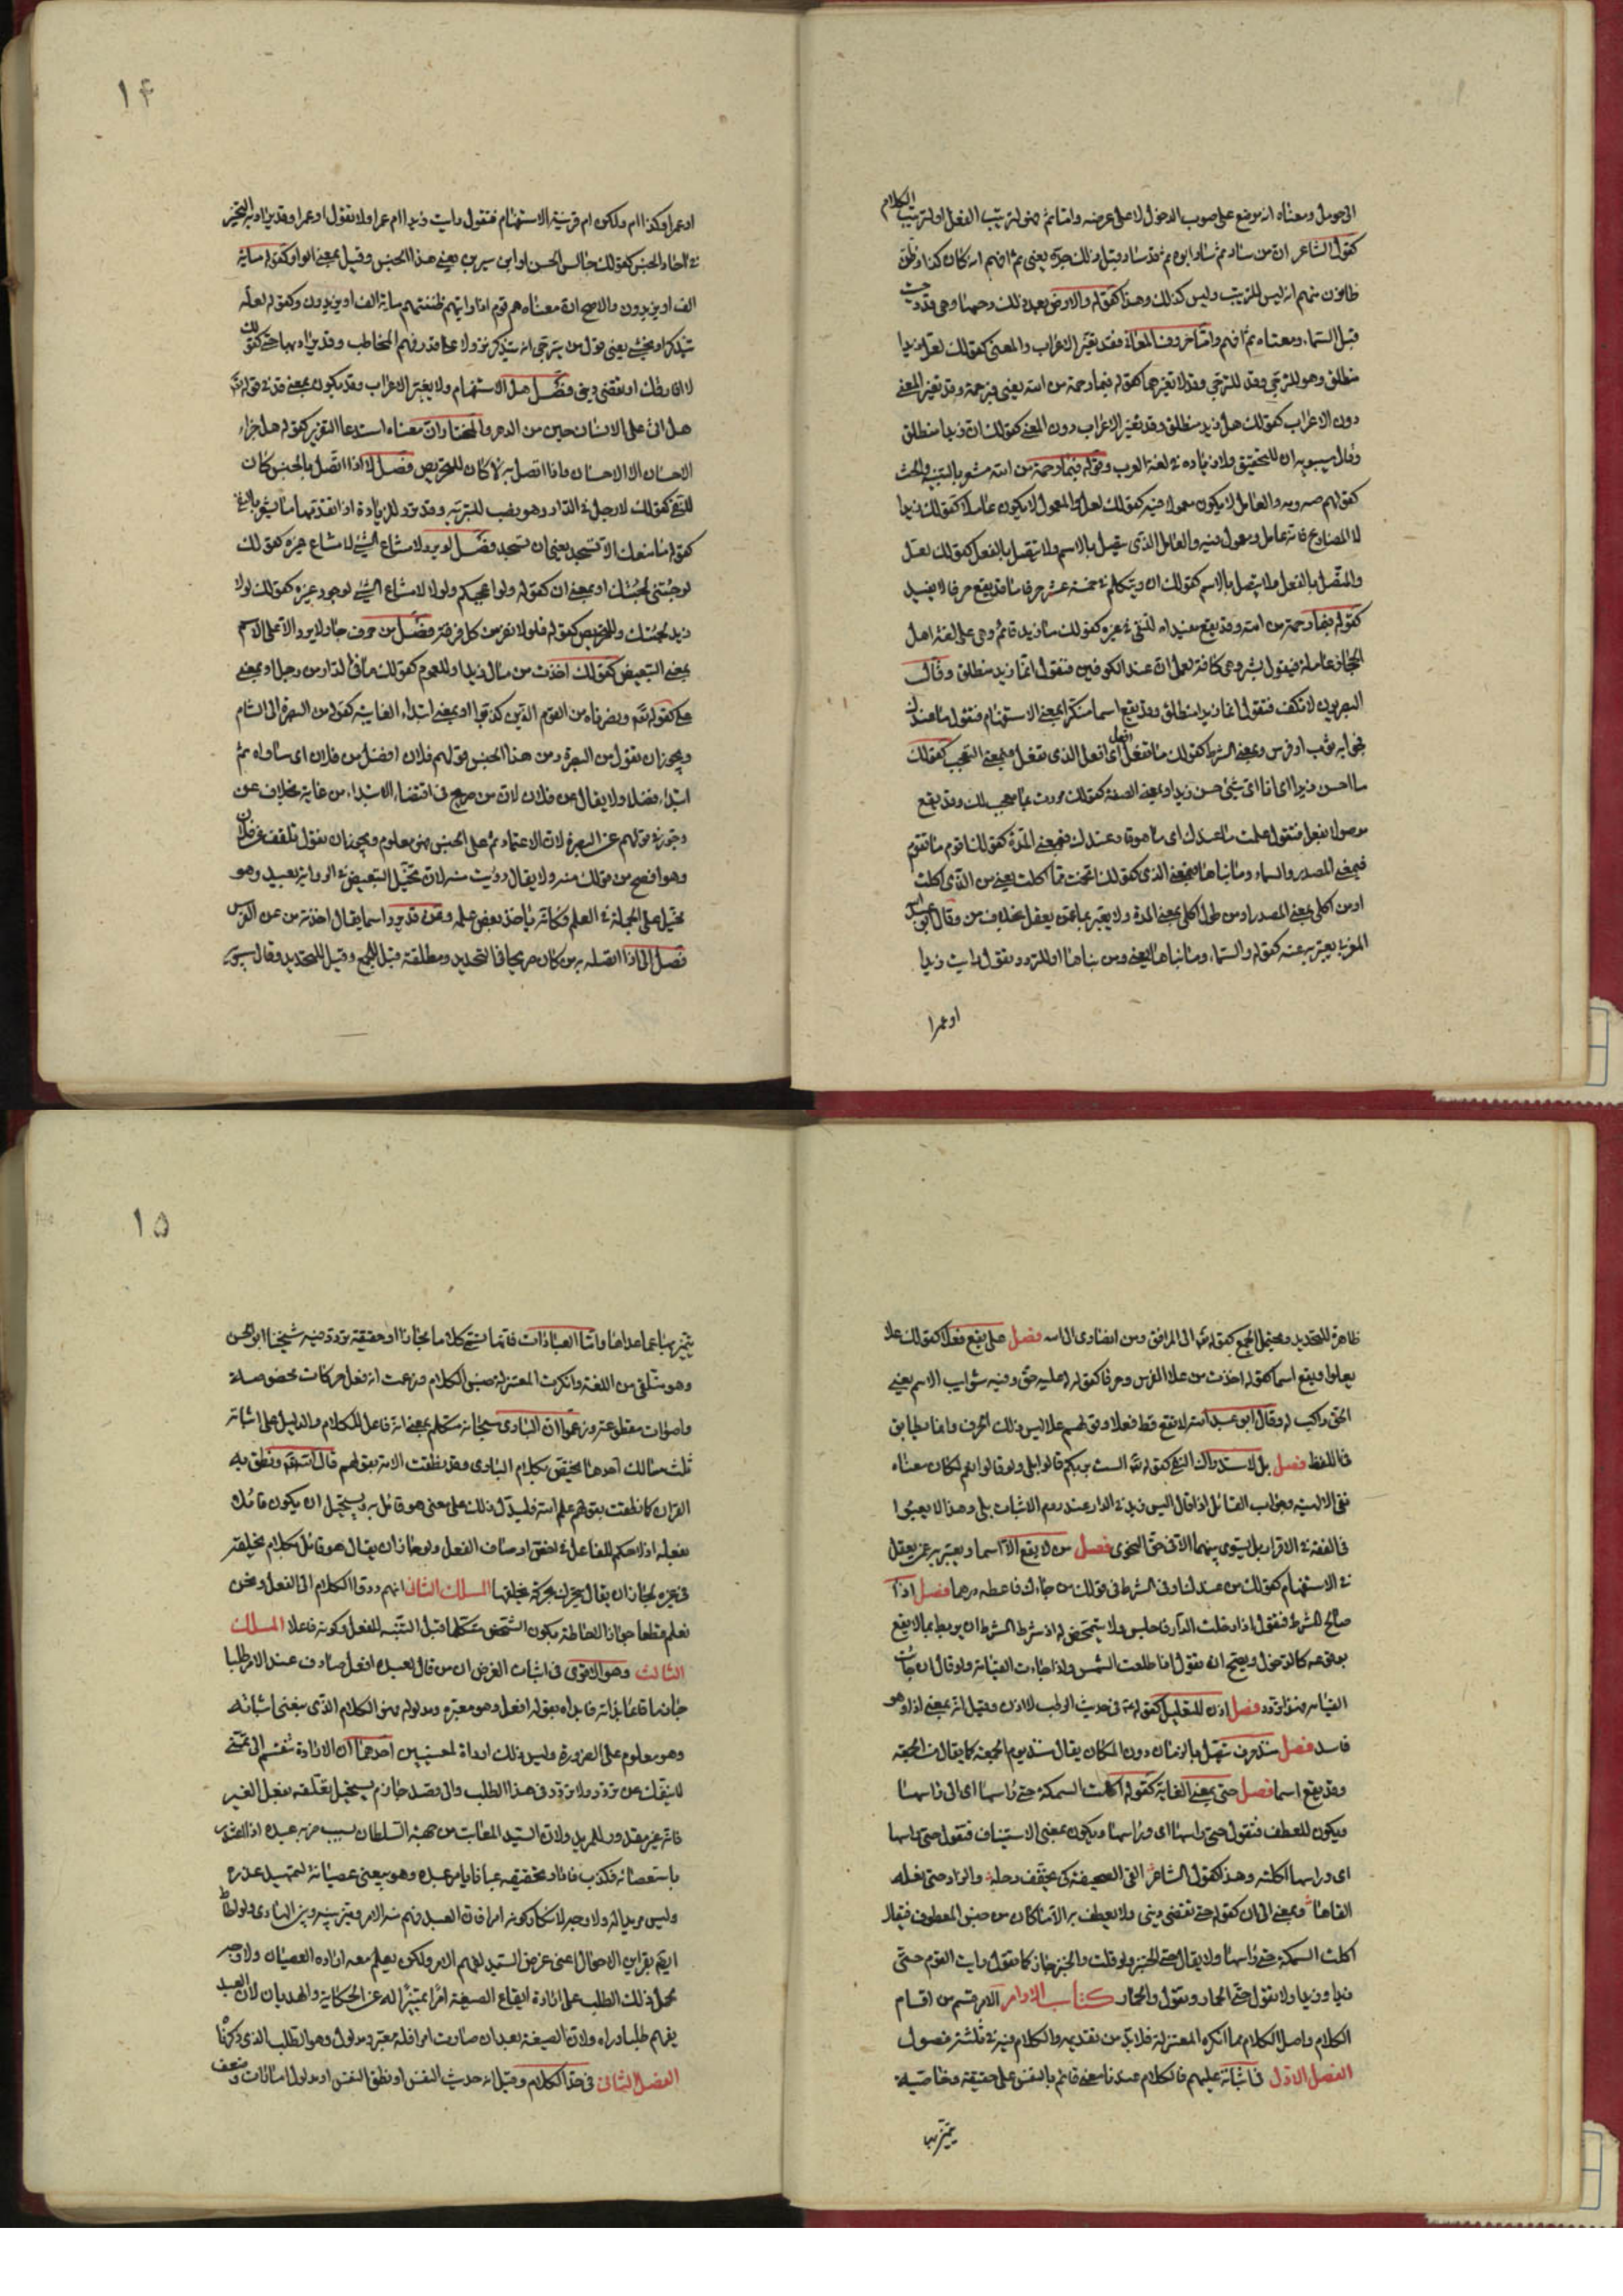 الى حومل ومعناه انه موضع على صوب الدخول لا على عرضه واما ثم فهو لترتيب الفعل او لترتيب الكلام
كقول الشاعر ان من ساد ثم ساد ابوه ثم قد ساد قبل ذلك جده يعنى ثم افهم انه كان كذا وظن
ظانون منهم انه ليس للترتيب وليس كذلك وهذا كقوله والارض بعد ذلك دحيها وهى قد دحيت
قبل السماء ومعناه ثم افهم واما
منطلق وهو للترجى وقد لا تغيرهما كقوله فبما رحمة من الله يعنى فبرحمة وقد تغير المعنى
دون الاعراب كقولك هل زيد منطلق وقد تغير الاعراب دون المعنى كقولك ان زيدا منطلق
وقال سيبويه ان للتحقيق ولا زيادة فى لغة العرب وقوله فبما رحمة من الله مشعر
كقولهم صه ومه والعامل لا يكون معمولا فيه كقولك لعل والمعمول لا يكون عاملا كقولك زيدا
لا المضارع فانه عامل ومعمول فيه والعامل الذى يتصل بالاسم ولا يتصل بالفعل كقولك لعل
والمتصل بالفعل ولا يتصل بالاسم كقولك ان ويتكلم فى خمسة عشر حرفا ما قد يقع حرفا لا يفيد
كقوله فبما رحمة من الله وقد يقع مفيدا للنفى فى غيره كقولك ما زيد قائم وهى على لغة اهل
الحجاز عاملة فيقول بشرا وهى كافة لعمل ان عند الكوفيين فتقول انما زيد منطلق وقال
البصريون لا تكف فتقول انما زيدا منطلق وقد يقع اسما منكرا بمعنى الاستفهام فتقول ما عندك
فجوابه ثوب او فرس وبمعنى الشرط كقولك ما تفعل افعل اى افعل الذى تفعل وبمعنى التعجب كقولك
ما احسن زيدا اى انا اى شىء حسن زيدا وبمعنى الصفة كقولك مررت بما معجب لك وقد يقع
موصولا بفعل فتقول علمت ما عندك اى ما هو قار عندك وبمعنى المدة كقولك اقوم ما تقوم
وبمعنى المصدر والسماء وما بناها وبمعنى الذى كقولك اتخمت مما اكلت يعنى من الذى اكلت
او من اكلى بمعنى المصدر او من طول اكلى بمعنى المدة ولا يعبر بما عمن يعقل بخلاف من وقال ابو عبيدة
يعبر به عنه كقوله والسماء وما بناها يعنى ومن بناها او للتردد تقول رايت زيدا
او عمرا
١٤
او عمرا وكذا ام ولكن ام قرينة الاستفهام فتقول رايت زيدا ام عمرا ولا تقول او عمرا وقد يراد به التخيير
فى احاد الجنس كقولك جالس الحسن او ابن سيرين يعنى هذا الجنس وقيل بمعنى الواو كقوله مائة
الف او يزيدون والاصح ان معناه هم قوم اذا رايتهم ظننتهم مائة الف او يزيدون وكقوله لعله
يتذكر او يخشى يعنى قول من يترجى انه يتذكر نزولا على قدر فهم المخاطب وقد يراد بها حتى كقولك
لا افارقك او تقضى دينى فصل هل الاستفهام ولا يغير الاعراب وقد يكون بمعنى قد فى قوله تع
هل اتى على الانسان حين من الدهر والمختار ان معناه استدعا التقرير كقوله هل جزاء
الاحسان الا الاحسان واذا اتصل به لا كان للتحريص فصل لا اذا اتصل بالجنس كان
للنفى كقولك لا رجل فى الدار وهو نصب للتبرئة وقد ترد للزيادة اذا تقدمها ما يشعر بالنفى
كقوله ما منعك الا تسجد يعنى ان تسجد فصل لو يرد لامتناع الشىء لامتناع غيره كقولك
لو جئتنى لجئتك او بمعنى ان كقوله ولو اعجبكم ولولا لامتناع الشىء لوجود غيره كقولك لولا
زيد لجئتك وللتحريص كقوله فلولا نفر من كل فرقة فصل من حرف جار ولا يرد الا على الاسم
بمعنى التبعيض كقولك اخذت من مال زيد او للعموم كقولك ما فى الدار من رجل او بمعنى
على كقوله تع ونصرناه من القوم الذين كذبوا او بمعنى ابتداء الغاية كقوله من البصرة الى الشام
ويجوز ان تقول من البصرة ومن هذا الجنس قولهم فلان افضل من فلان اى ساواه ثم
ابتداء فضلا ولا يقال عن فلان لان من صريح فى اقتضاء الابتداء من غاية بخلاف عن
وجوز فى قولهم عن البصرة لان الاعتماد ثم على الجنس فهو معلوم ويجوز ان تقول تلقفت عن فلان
وهو افصح من قولك منه ولا يقال رويت منه لان تخيل التبعيض فى الرواية بعيد وهو
تخيل على الجملة فى العلم وكانه ياخذ بعض علمه وعن قد يرد اسما يقال اخذته من عن الفرس
فصل الى اذا اتصل به من كان صريحا فى التحديد ومطلقه قيل للجمع وقيل للتحديد وقال سيبويه
ظاهره للتحديد ويحتمل الجمع كقوله تع الى المرافق ومن انصارى الى الله فصل على يقع فعلا كقولك علا
يعلوا ويقع اسما كقوله اخذت من علا الفرس وحرفا كقوله له عليه حق وفيه شوايب الاسم يعنى
الحق راكب له وقال ابو عبد الله لا تقع قط فعلا وقولهم علا ليس ذلك الحرف وانما يطابق
فى اللفظ فصل بل لاستدراك النفى كقوله تع الست بربكم قالوا بلى ولو قالوا نعم لكان معناه
نفى الالهية وجواب القائل اذا قال اليس زيد فى الدار عند روم الاثبات بلى وهذا لا يعبؤا
فى الفقه فى الاقرار بل يستوى بينهما الا فى حق النحوى فصل من لا يقع الا اسما ويعتبر به عمن يعقل
فى الاستفهام كقولك من عندك وفى الشرط فى قولك من جاءك فاعطه درهما فصل اذا
صالح للشرط فتقول اذا دخلت الدار فاجلس ولا يتمحض له اذ شرط الشرط ان يربط بما لا يقع
بوقوعه كالدخول ويصح ان تقول اذا طلعت الشمس واذا جاءت القيامة ولو قال ان جاءت
القيامة فهو تردد فصل اذن للتعليل كقوله تع فى حديث الرطب لا اذن وقيل انه بمعنى اذا وهو
فاسد فصل منذ حرف يتصل بالزمان دون المكان يقال منذ يوم الجمعة كما يقال من الجمعة
وقد يقع اسما فصل حتى بمعنى الغاية كقوله اكلت السمكة حتى راسها اى الى راسها
ويكون للعطف فتقول حتى راسها اى وراسها ويكون بمعنى الاستيناف فتقول حتى راسها
اى وراسها اكلته وهذا كقول الشاعر القى الصحيفة كى يخفف رحله والزاد حتى نعله
القاها وبمعنى الى ان كقوله حتى تقضى دينى ولا يعطف به الا ما كان من جنس المعطوف فيقال
اكلت السمكة حتى راسها ولا يقال حتى الخبز ولو قلت والخبز جاز كما تقول رايت القوم حتى
زيدا وزيدا ولا تقول حتى الحمار وتقول والحمار كتاب الاوامر الامر قسم من اقسام
الكلام واصل الكلام مما انكره المعتزلة فلابد من تقديمه والكلام فيه فى ثلثة فصول
الفصل الاول فى اثباته عليهم فالكلام عندنا معنى قائم بالنفس على حقيقة وخاصية
يتميز بها
١٥
يتميز بها عما عداها واما العبارات فانها تسمى كلاما مجازا او حقيقة تردد فيه شيخنا ابو الحسن
وهو متلقى من اللغة وانكرت المعتزلة جنس الكلام وزعمت انه فعل حركات مخصوصة
واصوات مقطوعة وزعموا ان البارى سبحانه متكلم بمعنى انه فاعل للكلام والدليل على اثباته
ثلث مسالك احدها يختص بكلام البارى وهو نطقت الامة بقولهم قال الله تع ونطق به
القران كما نطقت بقولهم علم الله فليدل ذلك على معنى هو قائل به ويستحيل ان يكون قائلا
بفعله اذ لا حكم للفاعل فى اخص اوصاف الفعل ولو جاز ان يقال هو قائل بكلام يخلقه
فى غيره لجاز ان يقال متحرك بحركة يخلقها المسلك الثانى انهم ردوا الكلام الى الفعل ونحن
نعلم قطعا جواز الاحاطة بكون الشخص متكلما قبل التنبه للفعل وكونه فاعلا المسلك
الثالث وهو الاقوى فى اثبات الغرض ان من قال لعبده افعل صادف عند الامر طلبا
جازما قائما بذاته فابداه بقوله افعل وهو معبره ومدلوله فهو الكلام الذى نبغى اثباته
وهو معلوم على الضرورة وليس ذلك ارادة لمعنيين احدهما ان الارادة تنقسم الى تمنى
لا ينفك عن تردد ولا تردد فى هذا الطلب والى قصد جازم يستحيل تعلقه بفعل الغير
فانه غير مقدور للمريد ولان السيد المعاتب من جهة السلطان بسبب ضربه عبده اذا اعتذر
باستعصائه فكذب فاراد تحقيقه عيانا يامر عبده وهو يبغى عصيانه لتمهيد عذره
وليس مريدا له ولا وجه لانكار كونه امرا فان العبد فهم منه الامر
ايضا بقراين الاحوال اعنى غرض السيد لفهم الامر ولكن يعلم معه ارادة العصيان ولا وجه
لحمل ذلك الطلب على ارادة ايقاع الصيغة امرا تميزا له عن الحكاية والهذيان لان العبد
يفهم طلبا وراه ولان الصيغة بعد ان صارت امرا فله معبر ومدلول وهو الطلب الذى ذكرناه
الفصل الثانى فى حد الكلام وقيل انه حديث النفس او نطق النفس او مدلول امارات وضعت